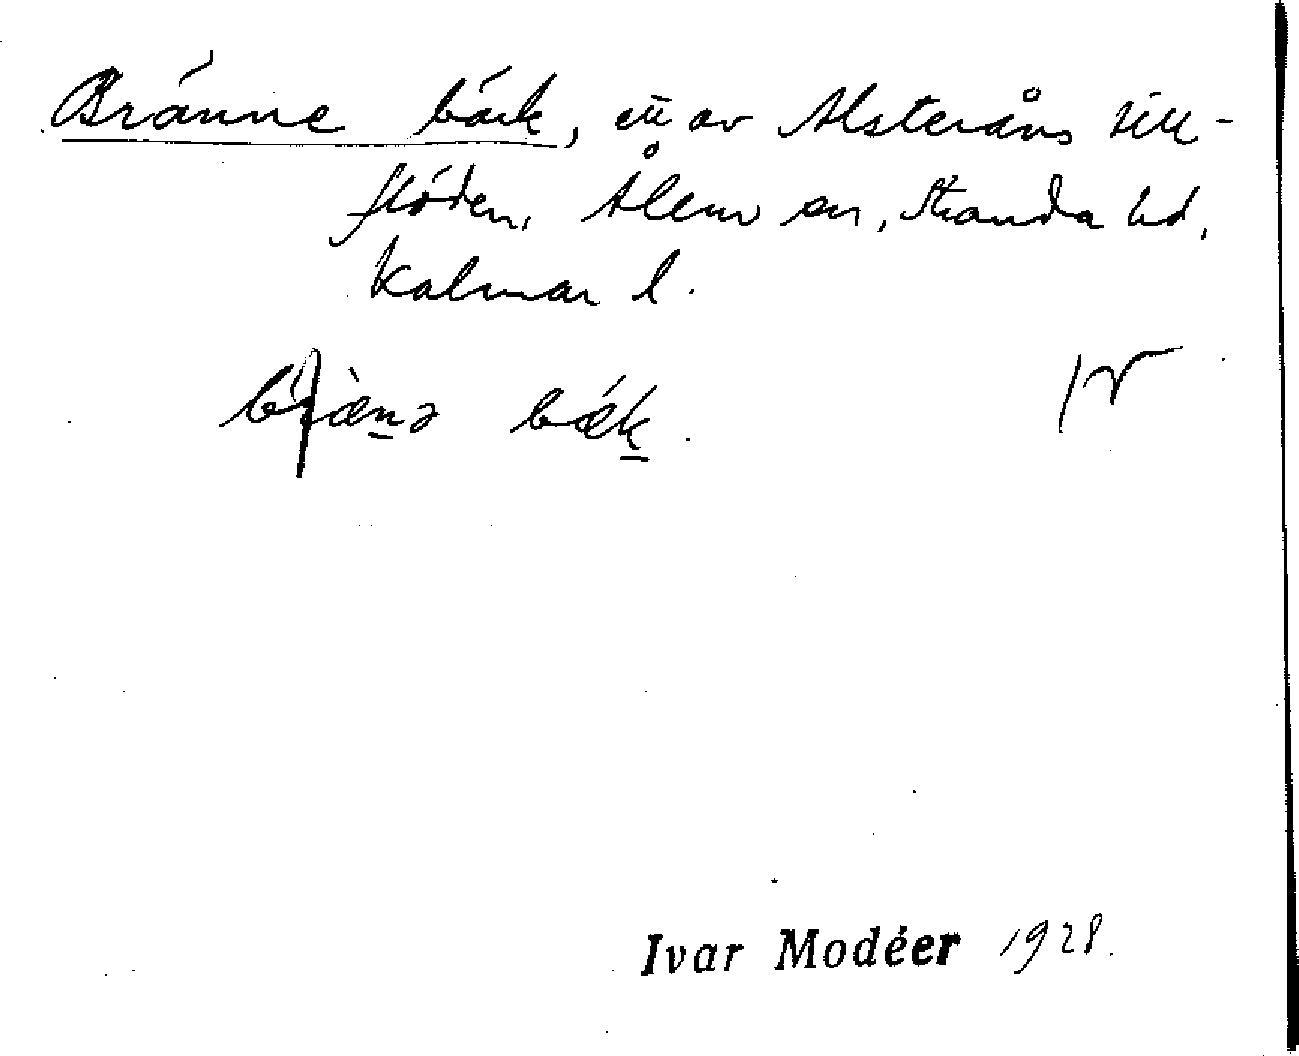 Bränne bäck, ett av Alsteråns till-
flöden, Ålem sn, Stranda hd,
Kalmar l.
bræ̀nə bǽk.
Ivar Modéer 1928.